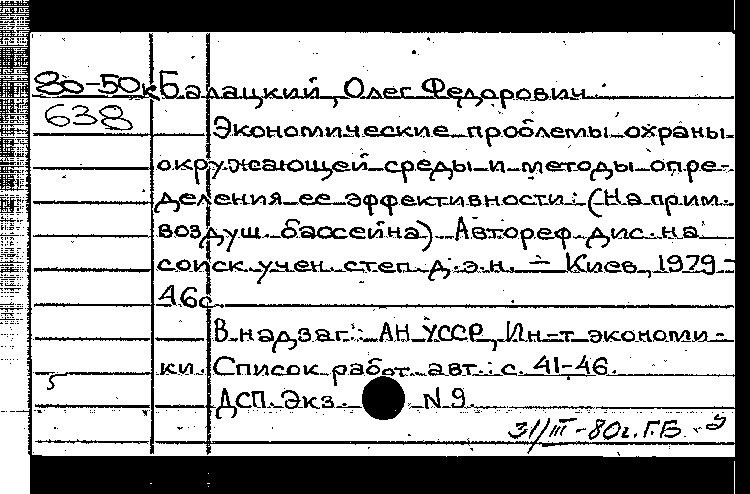 80-50к Балацкий, Олег Федорович.
638
Экономические проблемы охраны
окружающей среды и методы опре-
деления ее эффективности: (На прим.
воздуш. бассейна) Автореф. дис. на
соиск. учен. степ. д.э.н. - Киев, 1979-
46с.
В надзаг.: АН УССР, Ин-т экономи-
ки. Список работ авт.: с. 41-46.
5
ДСП. Экз. N 9.
31/III-80г. Г.Б.